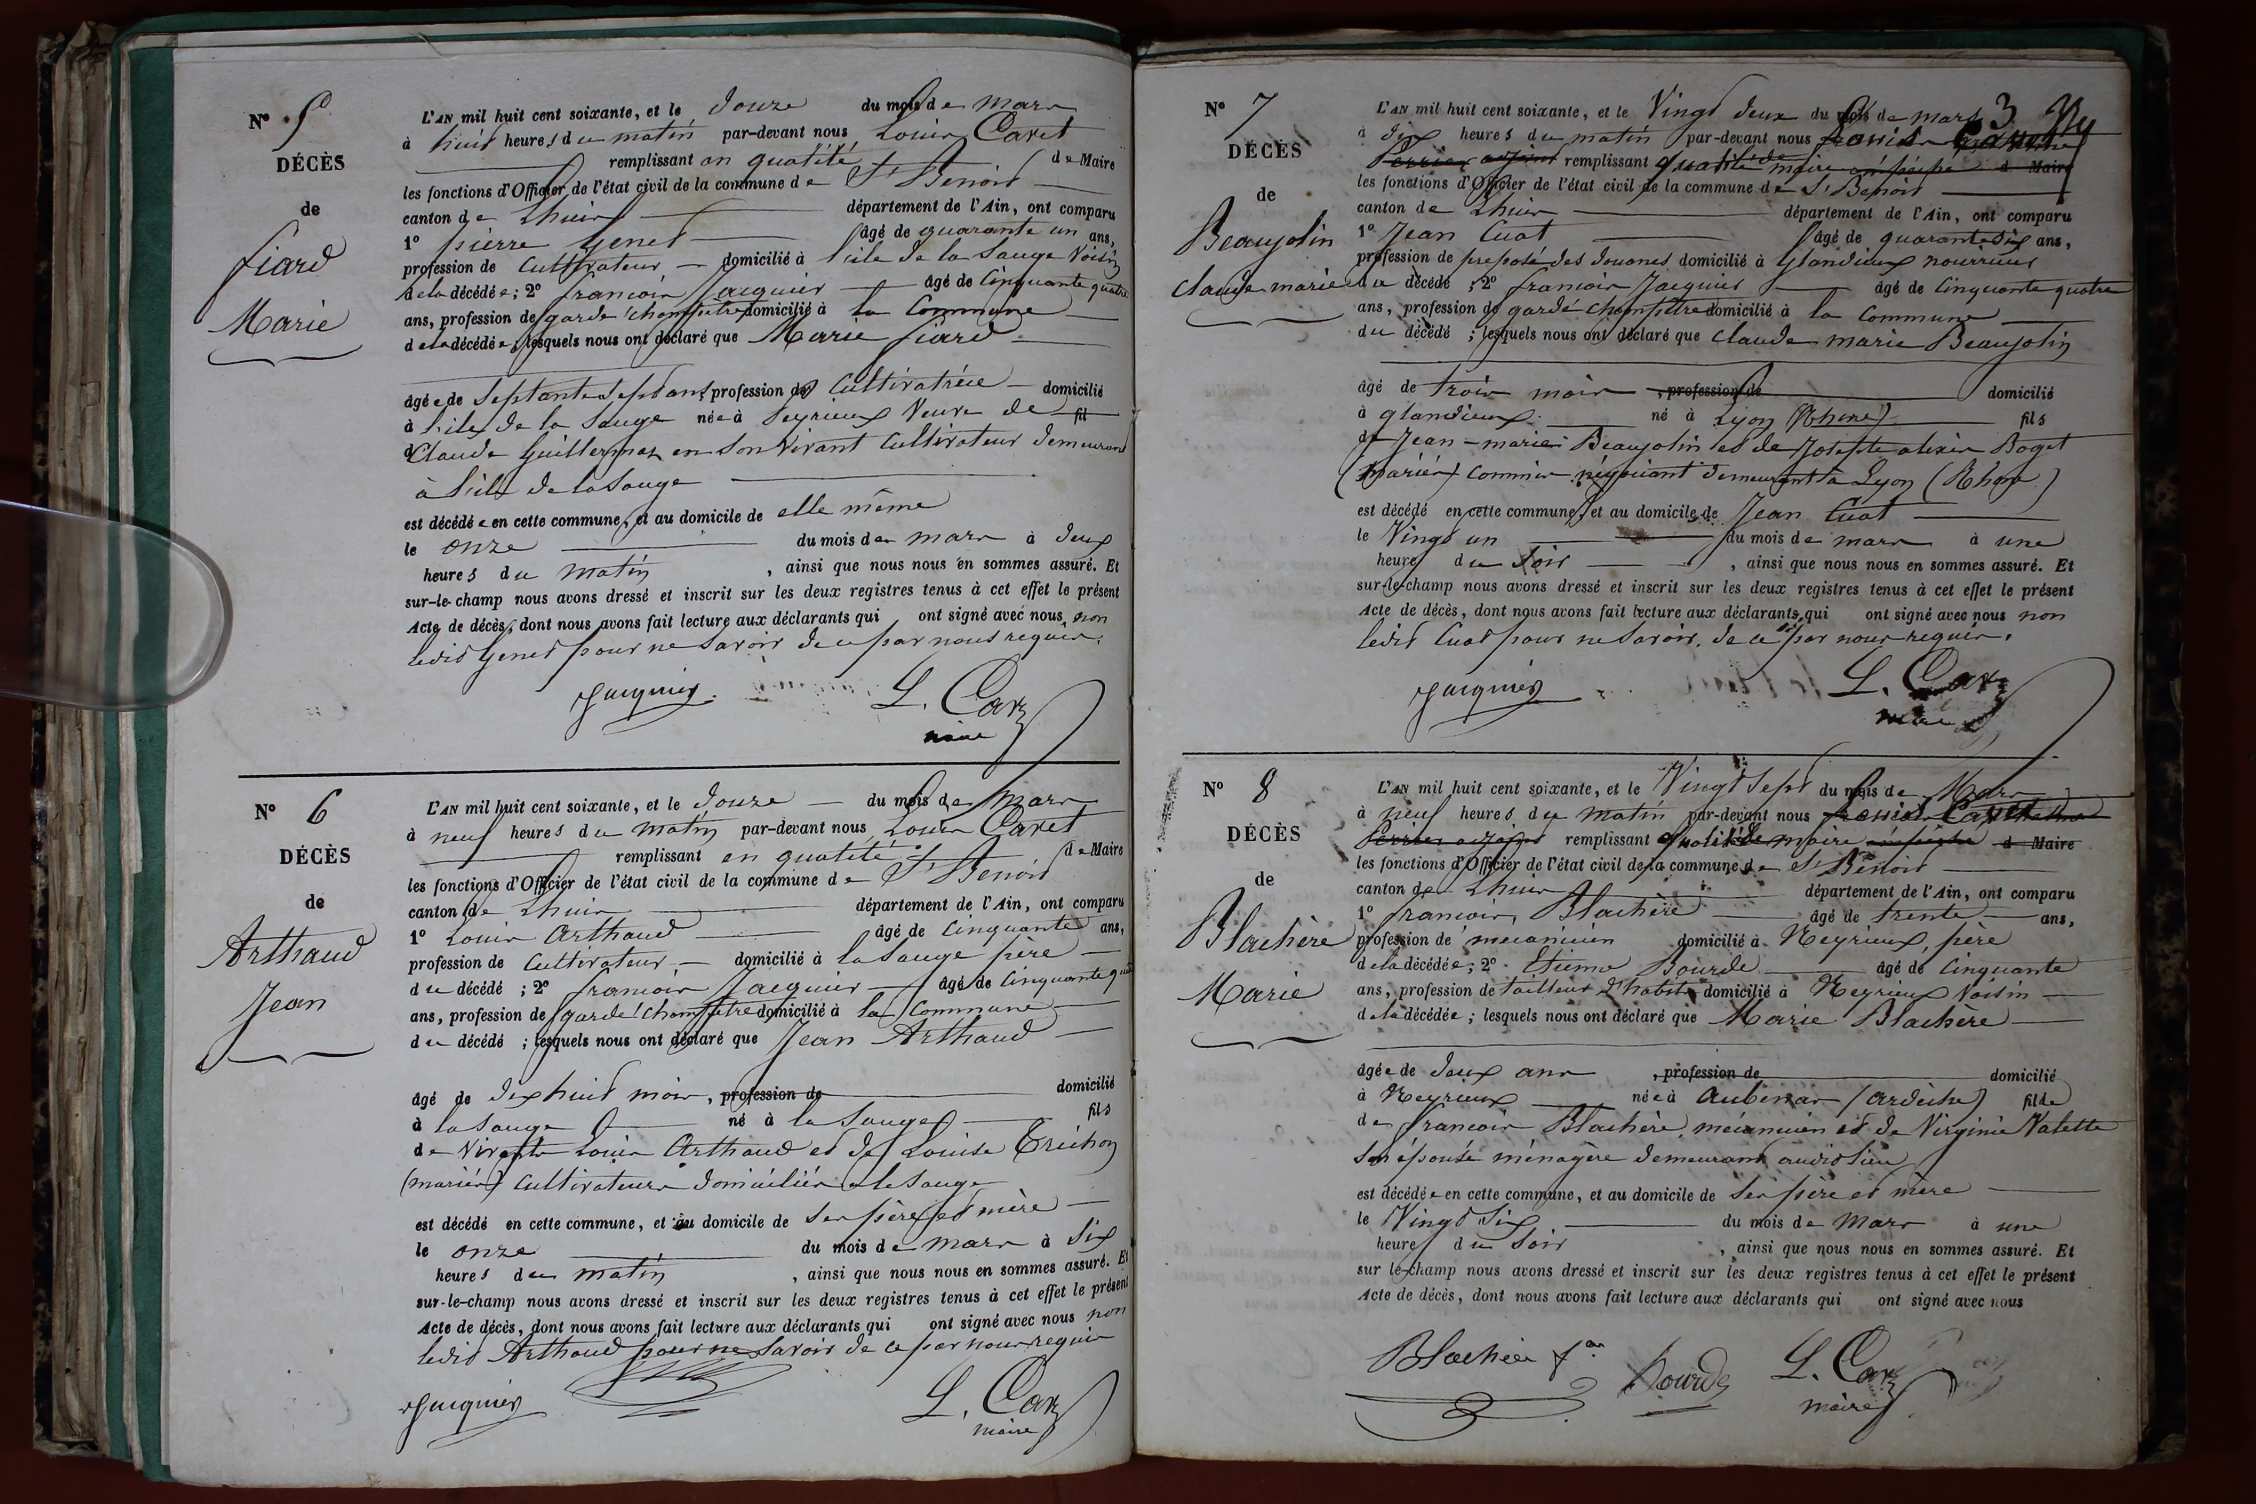 N° 5
DÉCÈS
de
fiard
Marie
L'AN mil huit cent soixante, et le douze du mois de mars
à huit heures du matin par-devant nous Louis Cavet
remplissant en qualité de Maire
les fonctions d'Officier de l'état civil de la commune de St Benoit
canton de Lhuis département de l'Ain, ont comparu
1° pierre Genet âgé de quarante un ans,
profession de Cultivateur domicilié à l'isle de la Sauge Voisin
de la décédée ; 2° françois Jacquier âgé de Cinquante quatre
ans, profession de garde champêtre domicilié à la Commune
de la décédée, lesquels nous ont déclaré que Marie fiard
âgée de septante sept ans, profession de Cultivatrice domicilié
à l'isle de la Sauge née à Peyrieux Veuve de fil
d Claude Guillermoz en son vivant Cultivateur demeurant
à l'isle de la Sauge
est décédée en cette commune, et au domicile de elle même
le onze du mois de mars à deux
heures du matin, ainsi que nous nous en sommes assuré. Et
sur-le-champ nous avons dressé et inscrit sur les deux registres tenus à cet effet le présent
Acte de décès, dont nous avons fait lecture aux déclarants qui ont signé avec nous, non
ledit Genet pour ne savoir de ce par nous requis.
Jacquier L. Cavet
maire
N° 6
DÉCÈS
de
Arthaud
Jean
L'AN mil huit cent soixante, et le douze du mois de Mars
à neuf heures du matin par-devant nous Louis Cavet
remplissant en qualité de Maire
les fonctions d'Officier de l'état civil de la commune de St Benoit
canton de Lhuis département de l'Ain, ont comparu
1° Louis Arthaud âgé de Cinquante ans,
profession de Cultivateur domicilié à la Sauge père
du décédé ; 2° françois Jacquier âgé de Cinquante qua
ans, profession de garde champêtre domicilié à la Commune
du décédé ; lesquels nous ont déclaré que Jean Arthaud
âgé de dix huit mois, profession de domicilié
à la Sauge né à la Sauge fils
de Louis Arthaud et de Louise Tréchon
(mariés) Cultivateurs domiciliés à la Sauge
est décédé en cette commune, et au domicile de ses père et mère
le onze du mois de mars à six
heures du matin, ainsi que nous nous en sommes assuré. Et
sur-le-champ nous avons dressé et inscrit sur les deux registres tenus à cet effet le présent
Acte de décès, dont nous avons fait lecture aux déclarants qui ont signé avec nous non
ledit Arthaud pour ne savoir de ce par nous requis
Jacquier L. Cavet
maire
3
N° 7
DÉCÈS
de
Beaujolin
claude marie
L'AN mil huit cent soixante, et le Vingt deux du mois de mars
à dix heures du matin par-devant nous Louis Cavet
Perrier adjoint remplissant qualité de maire empêché d Maire
les fonctions d'Officier de l'état civil de la commune de St Benoit
canton de Lhuis département de l'Ain, ont comparu
1° Jean Cuat âgé de quarante six ans,
profession de préposé des douanes domicilié à Glandieux nourricier
du décédé ; 2° françois Jacquier âgé de Cinquante quatre
ans, profession de garde champêtre domicilié à la Commune
du décédé ; lesquels nous ont déclaré que claude marie Beaujolin
âgé de trois mois, profession de domicilié
à glandieux né à Lyon (Rhône) fils
de Jean-marie Beaujolin et de Josephte alexis Boget
(mariés) commis négociant demeurant à Lyon (Rhône)
est décédé en cette commune, et au domicile de Jean Cuat
le Vingt un du mois de mars à une
heure du soir, ainsi que nous nous en sommes assuré. Et
sur-le-champ nous avons dressé et inscrit sur les deux registres tenus à cet effet le présent
Acte de décès, dont nous avons fait lecture aux déclarants qui ont signé avec nous non
ledit Cuat pour ne savoir, de ce par nous requis.
Jacquier L. Cavet
maire
N° 8
DÉCÈS
de
Blachère
Marie
L'AN mil huit cent soixante, et le Vingt Sept du mois de Mars
à neuf heures du matin par-devant nous Louis Cavet
Perrier adjoint remplissant qualité de maire empêché d Maire
les fonctions d'Officier de l'état civil de la commune de St Benoit
canton de Lhuis département de l'Ain, ont comparu
1° françois Blachère âgé de trente ans,
profession de mécanicien domicilié à Neyrieux, père
de la décédée ; 2° Etienne Bourde âgé de Cinquante
ans, profession de tailleur d'habits domicilié à Neyrieux Voisin
de la décédée ; lesquels nous ont déclaré que Marie Blachère
âgée de deux ans, profession de domicilié
à Neyrieux née à Aubenas (ardèche) fille
de françois Blachère, mécanicien et de Virginie Valette
son épouse ménagère demeurant audit lieu
est décédée en cette commune, et au domicile de ses père et mère
le Vingt Six du mois de Mars à une
heure du soir, ainsi que nous nous en sommes assuré. Et
sur le-champ nous avons dressé et inscrit sur les deux registres tenus à cet effet le présent
Acte de décès, dont nous avons fait lecture aux déclarants qui ont signé avec nous
Blachère fois Bourde L. Cavet
maire